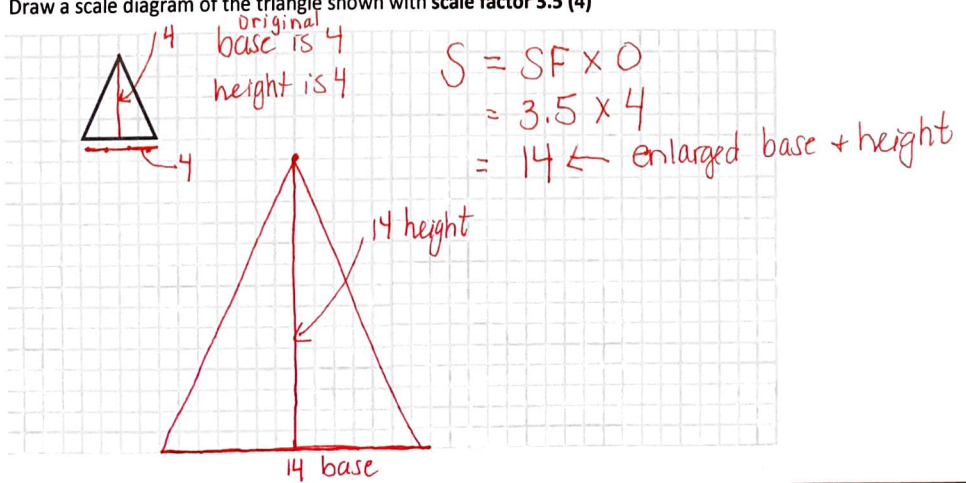 Draw a scale diagram of the triangle shown with scale factor 3.5 (4)
4
original
base is 4
height is 4
4
S = SF x O
= 3.5 x 4
= 14 ← enlarged base + height
14 height
14 base